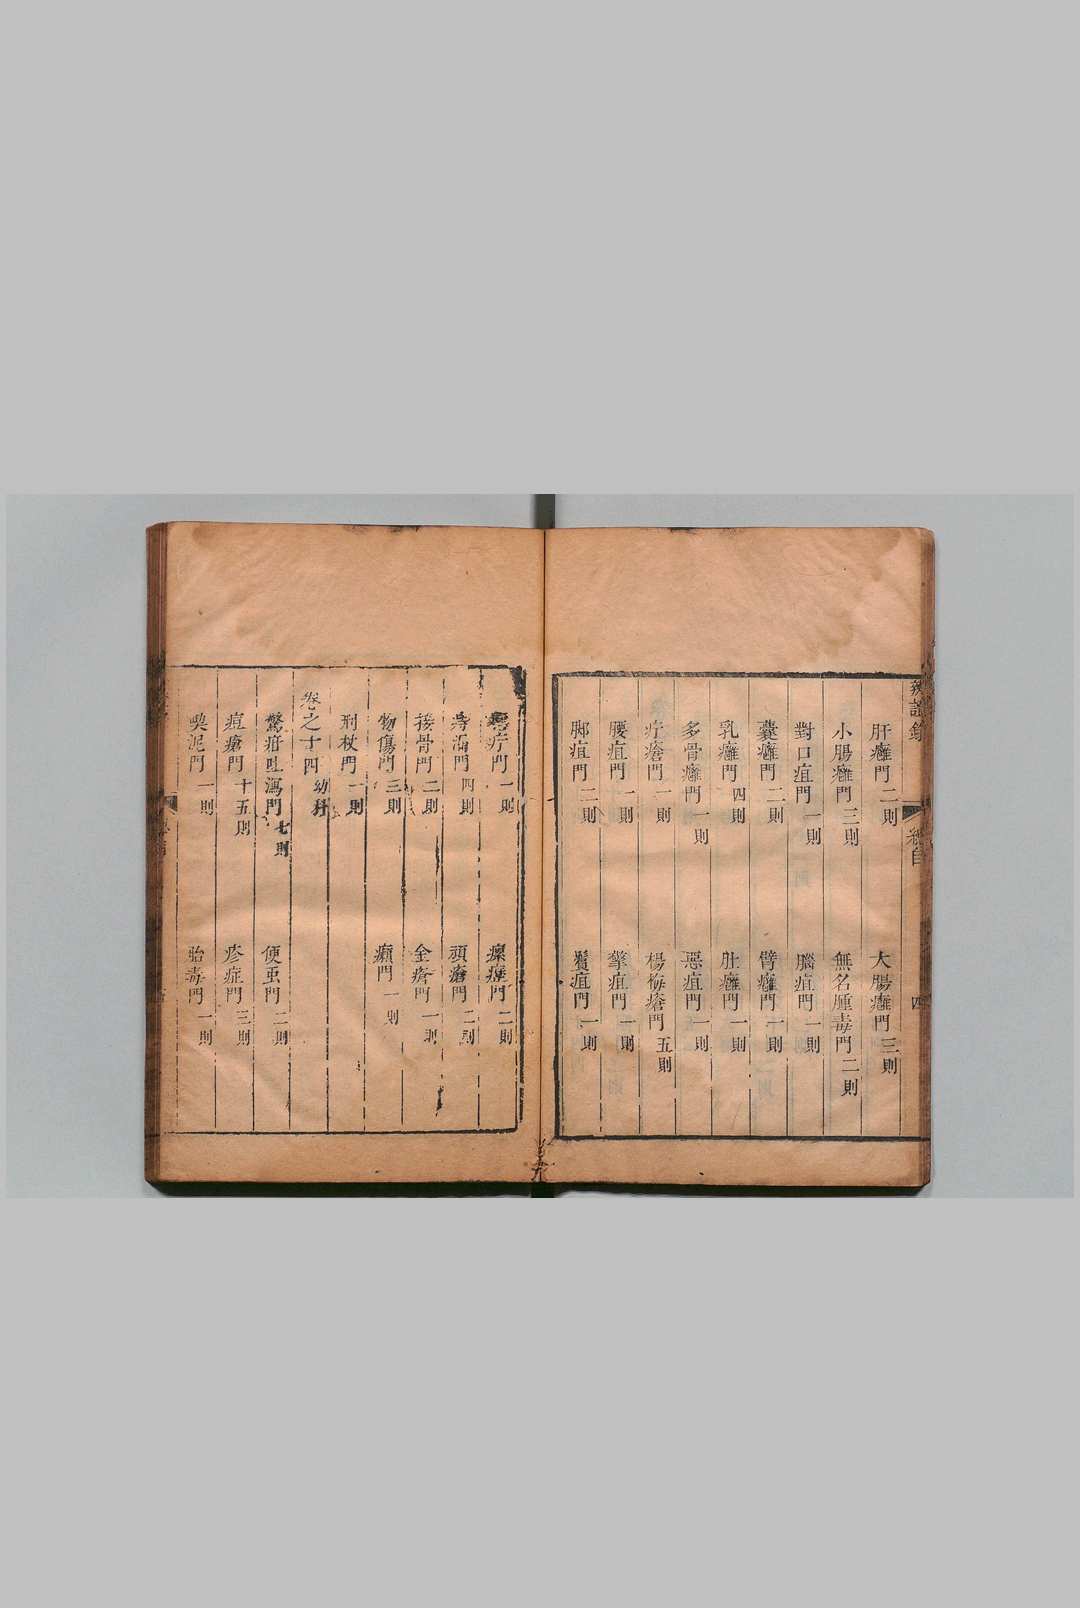 辨證錄
總目
四
肝癰門 二則
大腸癰門 三則
小腸癰門 三則
無名腫毒門 二則
對口疽門 一則
腦疽門 一則
囊癰門 二則
臂癰門 一則
乳癰門 四則
肚癰門 一則
多骨癰門 一則
惡疽門 一則
疔瘡門 一則
楊梅瘡門 五則
腰疽門 一則
擎疽門 一則
脚疽門 二則
鬢疽門 一則
門 一則
瘰癧門 二則
門 四則
頑瘡門 二則
接骨門 二則
金瘡門 一則
物傷門 三則
癩門 一則
刑杖門 一則
卷之十四 幼科
驚疳吐瀉門 七則
便蟲門 二則
痘瘡門 十五則
疹症門 三則
喫泥門 一則
胎毒門 一則